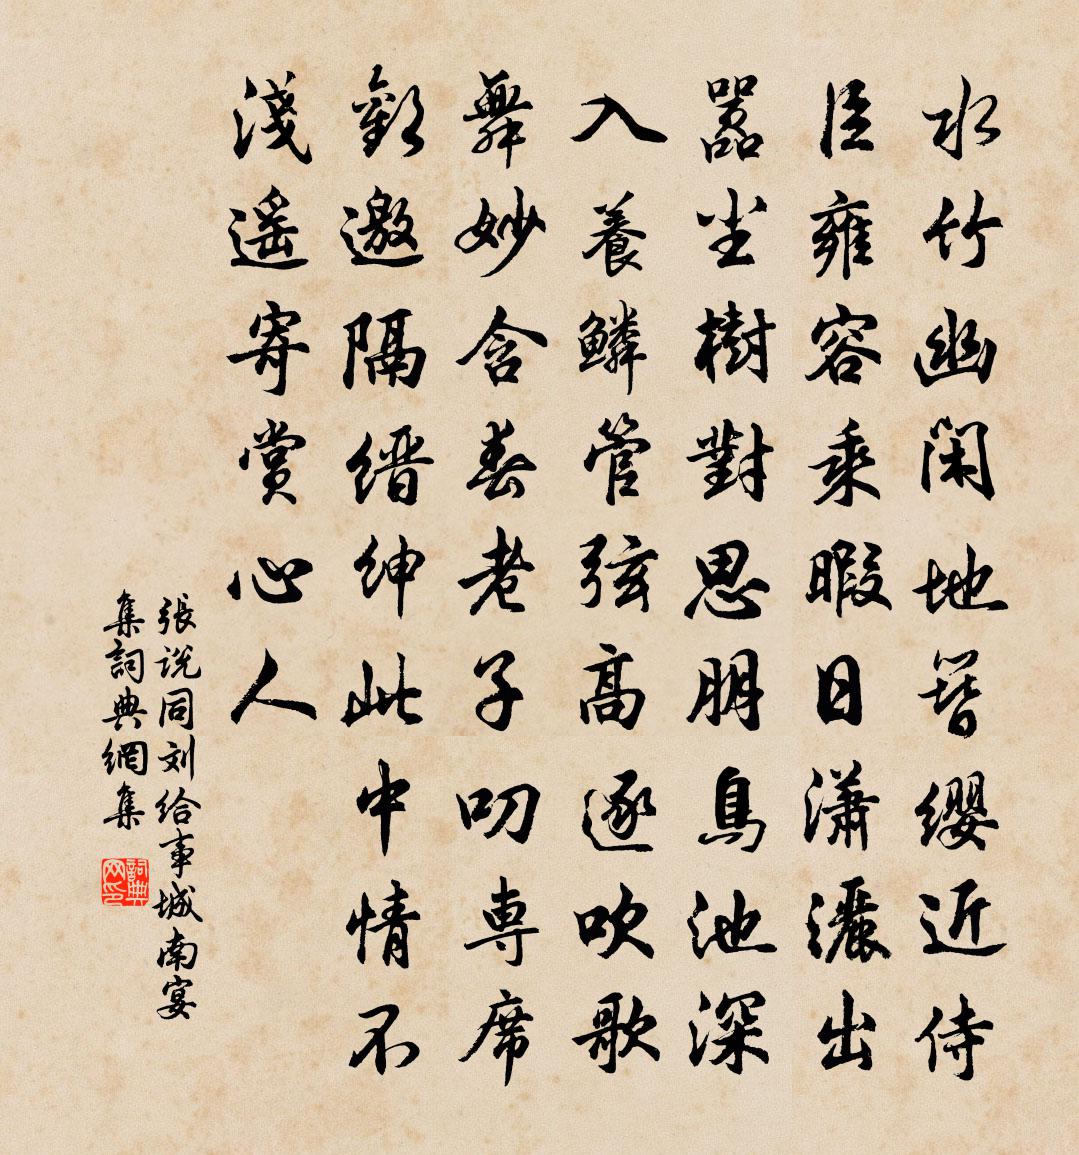 水竹幽閑地簪缨近侍
臣雍容乘暇日潇灑出
囂尘樹對思朋鳥池深
入養鱗管弦高逐吹歌
舞妙含春老子叨専席
歡邀隔缙紳此中情不
淺遥寄賞心人
張说同刘给事城南宴
集詞典網集
詞典
网印